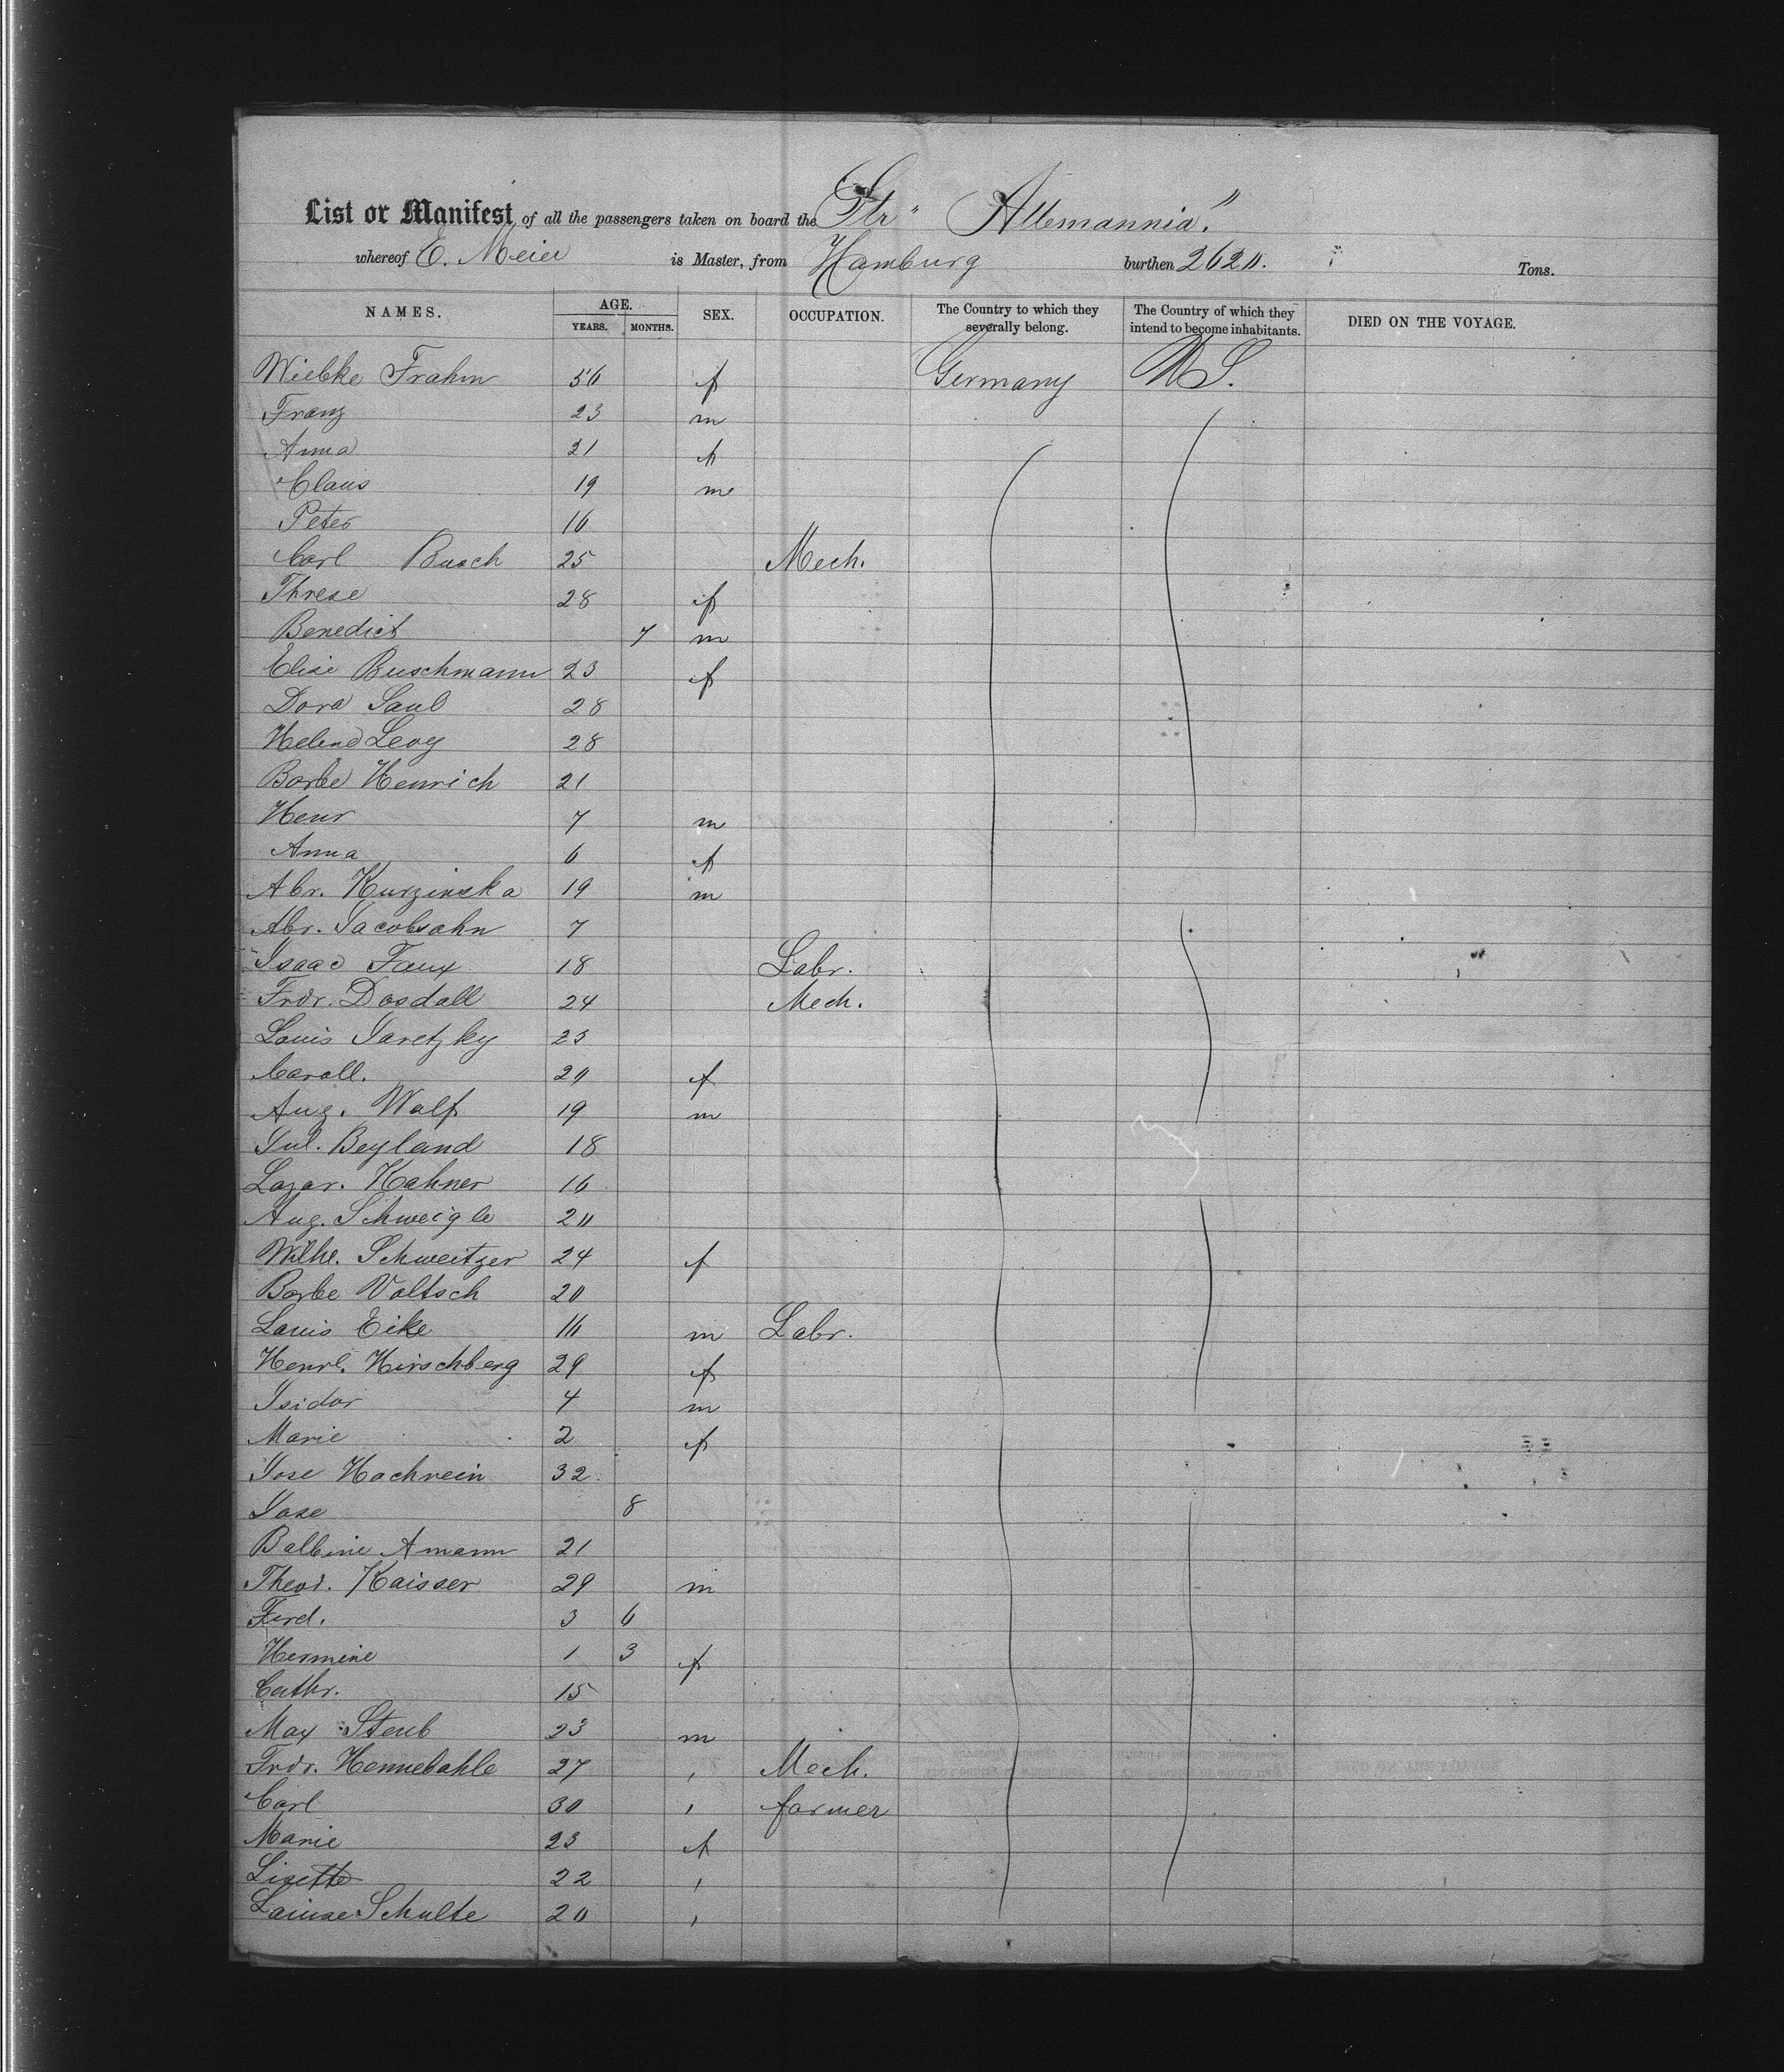 List or Manifest of all the passengers taken on board the Str "Allemannia"
whereof E. Meier is Master, from Hamburg burthen 2620. Tons.
NAMES. AGE. SEX. OCCUPATION. The Country to which they severally belong. The Country of which they intend to become inhabitants. DIED ON THE VOYAGE.
YEARS. MONTHS.
Wiebke Frahm 56 f Germany US.
Franz 23 m
Anna 21 f
Claus 19 m
Peter 16
Carl Busch 25 Mech.
Threse 28 f
Benedict 7 m
Elise Buschmann 23 f
Dora Saul 28
Helene Levy 28
Barbe Henrich 21
Henr 7 m
Anna 6 f
Abr. Kurzinska 19 m
Abr. Jacobsahn 7
Isaac Faux 18 Labr.
Frdr. Dosdall 24 Mech.
Louis Jaretzky 23
Caroll. 20 f
Aug. Wolf 19 m
Jul. Beyland 18
Lazar. Kahner 16
Aug. Schweigle 20
Wilhe. Schweitzer 24 f
Barbe Voltsch 20
Louis Eike 16 m Labr.
Henrl. Hirschberg 29 f
Isidor 4 m
Marie 2 f
Jose Hochrein 32.
Jose 8
Balbine Amann 21
Theod. Kaisser 29 m
Ferd. 3 6
Hermine 1 3 f
Cathr. 15
Max Steub 23 m
Frdr. Hennebahle 27 , Mech.
Carl 30 , farmer
Marie 23 f
Lisette 22 ,
Louise Schulte 20 ,